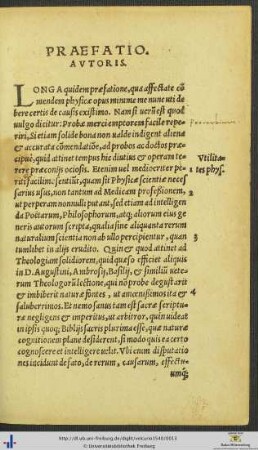 PRAEFATIO.
AVTORIS.
LONGA quidem præfatione, qua affectate cō
mendem physicæ opus minime me nunc uti de
bere certis de causis existimo. Nam si uerū est quod
uulgo dicitur: Probæ merci emptorem facile repe
riri, Si etiam solide bona non ualde indigent aliena
& accurata cōmendatiōe, ad probos ac doctos præ
cipue, quid attinet tempus hic diutius & operam te
rere præconijs ociosis. Etenim uel mediocriter pe
riti facilim. sentiūt, quam sit Physicæ scientia neces
sarius usus, non tantum ad Medicam professionem,
ut perperam nonnulli putant, sed etiam ad intelligen
da Poëtarum, Philosophorum, atq; aliorum eius ge
neris autorum scripta, quæ sine aliquanta rerum
naturalium scientia non ab ullo percipientur, quan
tumlibet in alijs erudito. Quin & quod attinet ad
Theologiam solidiorem, quid quæso efficiet aliquis
in D. Augustini, Ambrosij, Basilij, & similiū uete
rum Theologorū lectione, qui nō probe degustarit
& imbiberit naturæ fontes, ut amœnissimos ita &
saluberrimos. Et nemo sanus tam ist sacræ scriptu
ræ negligens & imperitus, ut arbitror, quin uideat
in ipsis quoq; Biblijs sacris plurima esse, quæ naturæ
cognitionem plane desiderent, si modo quis ea certo
cognoscere et intelligere uelit. Vbi enim disputatio
nes incidunt de fato, de rerum, causarum, effectu
umq;
Vtilita-
tes phys.
1
2
3
4
http://dl.ub.uni-freiburg.de/diglit/velcurio1540/0013
© Universitätsbibliothek Freiburg